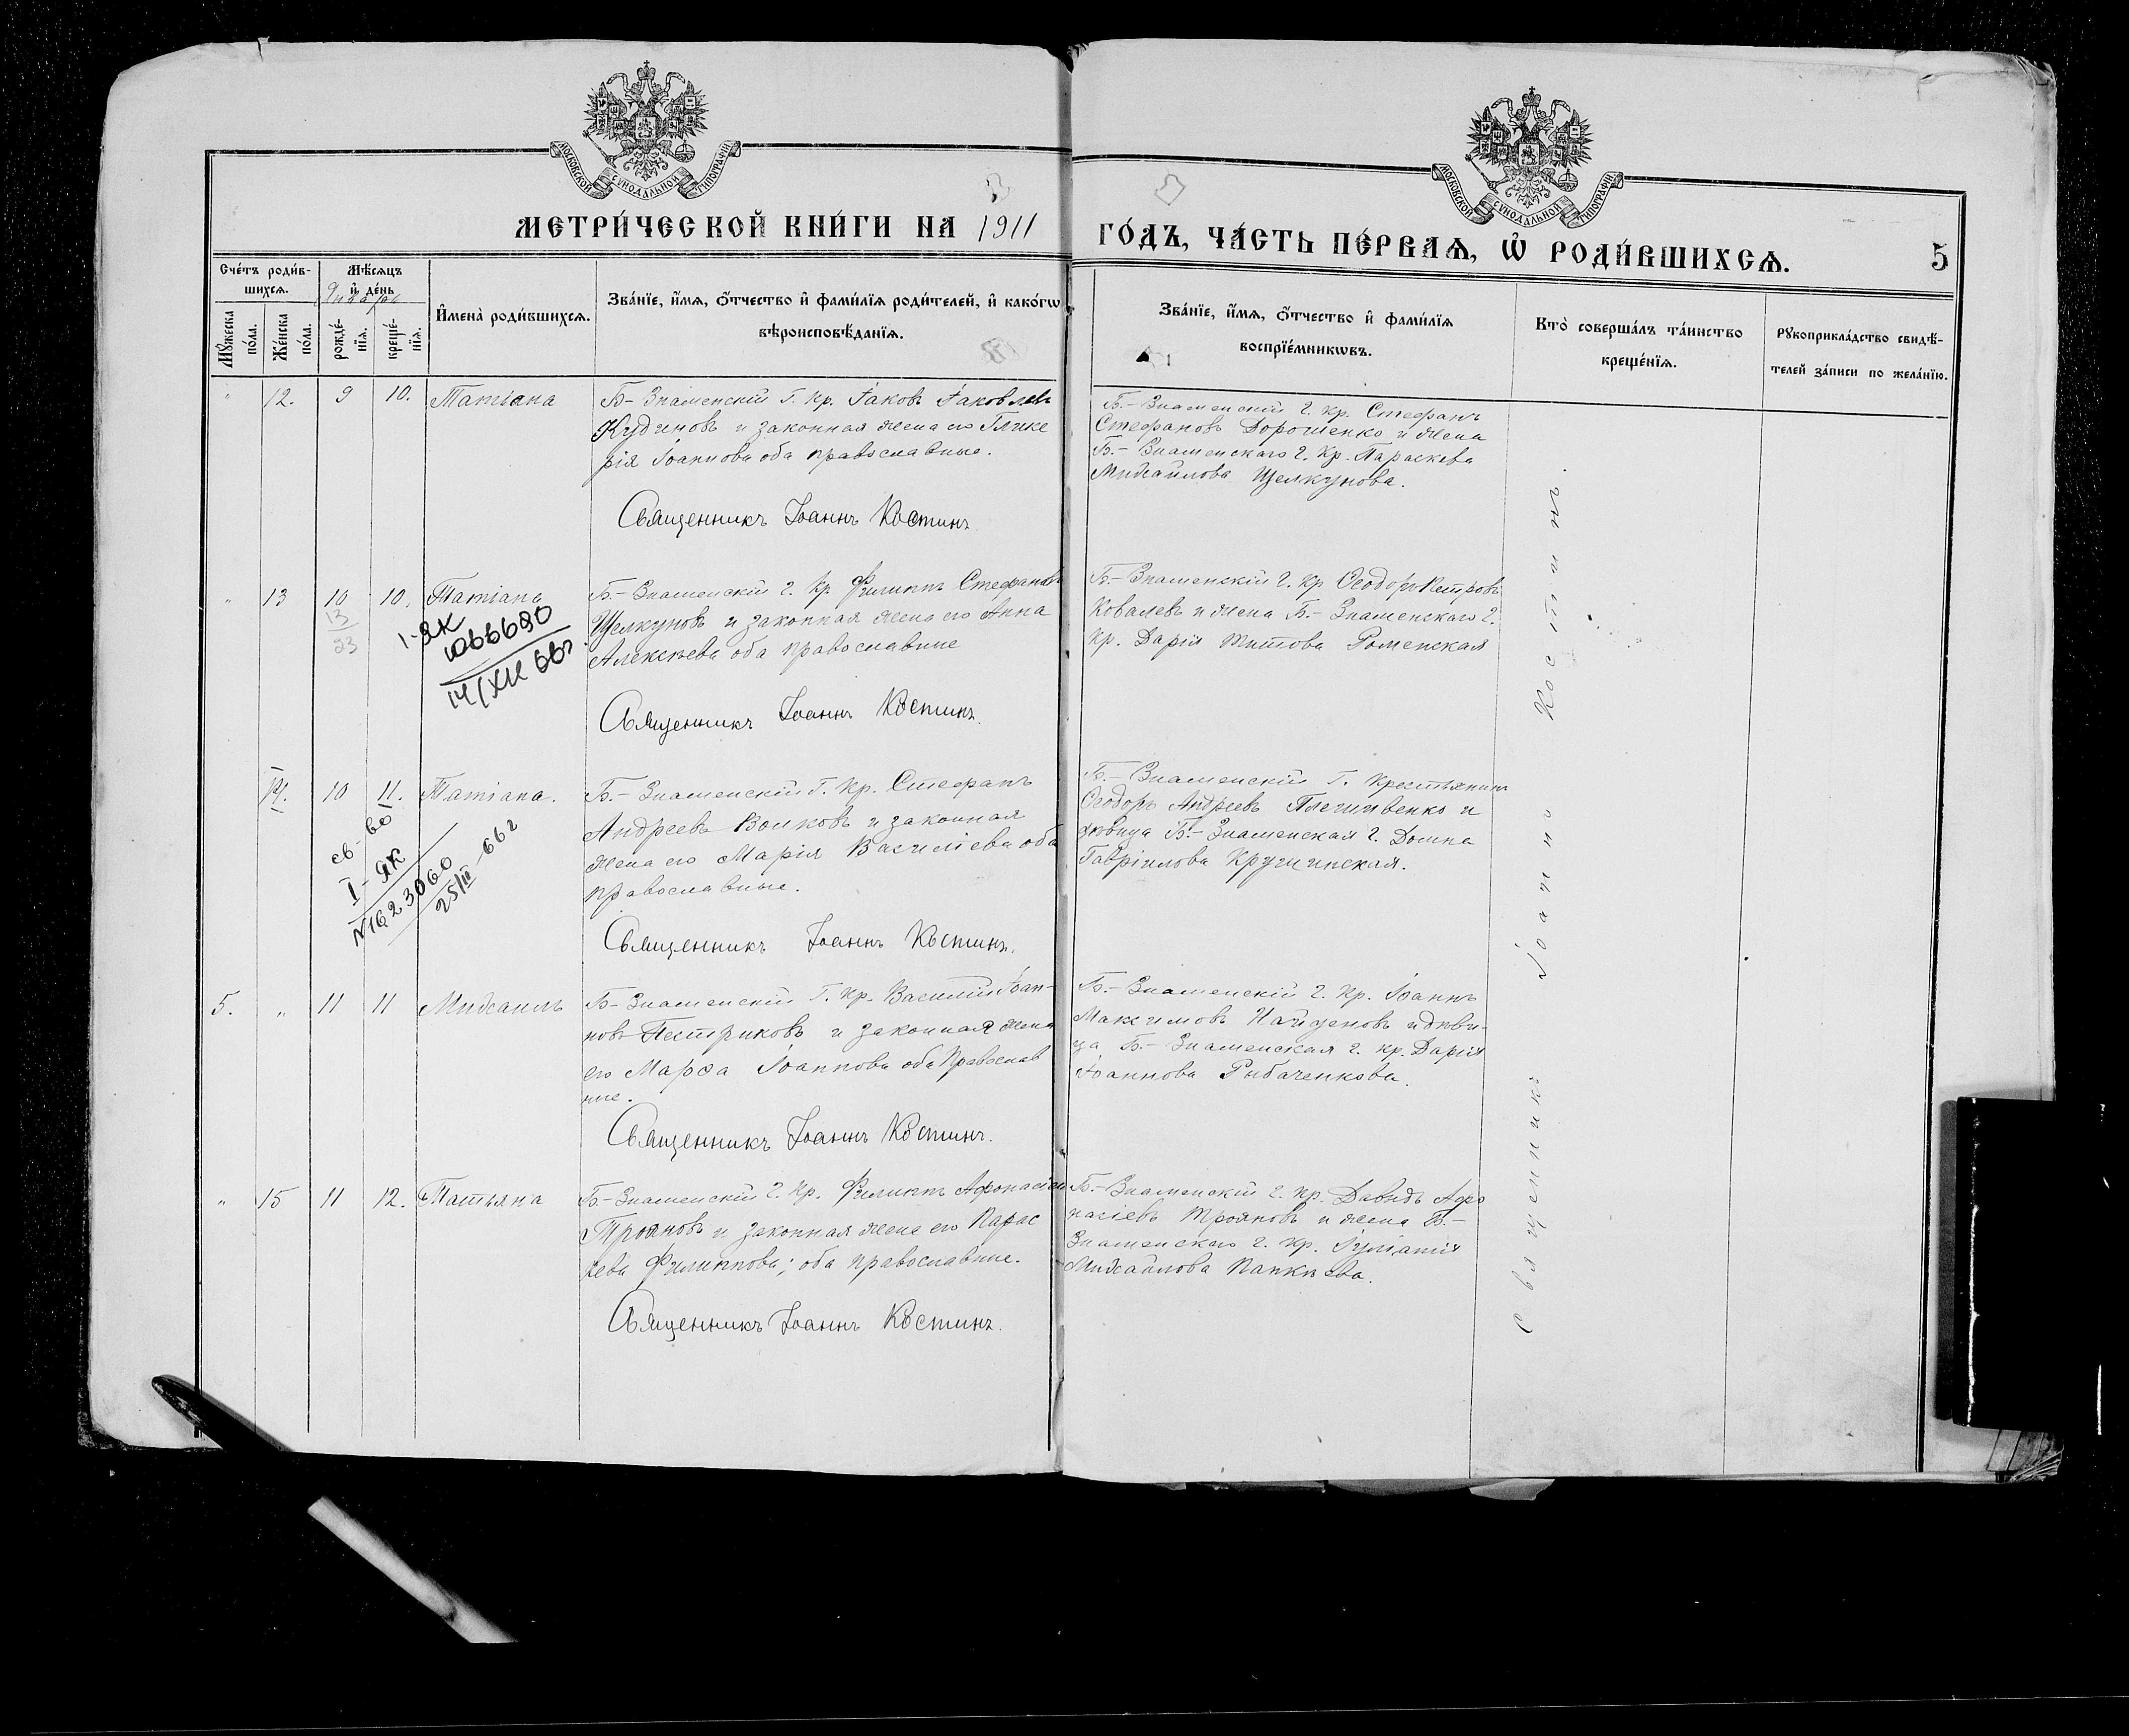 МОСКОВСКОЙ СѴНОДАЛЬНОЙ ТИПОГРАФІИ
МОСКОВСКОЙ СѴНОДАЛЬНОЙ ТИПОГРАФІИ
МЕТРИ́ЧЕСКОЙ КНИ́ГИ НА 1911
ГО́ДЪ, ЧА́СТЬ ПЕ́РВАѦ, Ѡ РОДИ́ВШИХСѦ.
5
Сче́тъ роди́в-
шихсѧ.
Мѣ́сѧцъ
и҆ де́нь
Январь
Мꙋ́жеска по́ла.
Же́нска по́ла.
рожде́-
нїѧ.
креще́-
нїѧ.
И҆мена̀ роди́вшихсѧ.
Зва́нїе, и҆́мѧ, ѻ҆́тчество и҆ фами́лїѧ роди́телей, и҆ како́гѡ
вѣроисповѣ́данїѧ.
Зва́нїе, и҆́мѧ, ѻ҆́тчество и҆ фами́лїѧ
воспрїе́мникѡвъ.
Кто̀ соверша́лъ та́инство
креще́нїѧ.
Рꙋкоприкла́дство свидѣ́-
телей за́писи по жела́нїю.
" 12. 9 10. Татьяна
Б-Знаменскій Г. Кр. Іаковъ Іаковлевъ
Кудиновъ и законная жена его Глике
рія Іоаннова оба православные.
Священникъ Іоаннъ Костинъ
Б.-Знаменскій г. Кр. Стефанъ
Стефановъ Дорошенко и жена
Б.-Знаменскаго г. Кр. Параскева
Михайлова Щелкунова.
" 13 10 10. Татіана
13
23
I-ЯК
1066680
14/XII 66г.
Б-Знаменскій г. Кр Филиппъ Стефановъ
Щелкуновъ и законная жена его Анна
Алексѣева оба православные
Священникъ Іоаннъ Костинъ.
Б-Знаменскій г. Кр Ѳеодоръ Петровъ
Ковалевъ и жена Б-Знаменскаго г.
Кр. Дарія Титова Роменская
14. 10 11. Татіана.
св-во
I-ЯК
№1623060
25/III-66г
Б.-Знаменскій Г. Кр. Стефанъ
Андреевъ Волковъ и законная
жена его Марія Василіева оба
православные.
Священникъ Іоаннъ Костинъ.
Б.-Знаменскій Г. Крестьянинъ
Ѳеодоръ Андреевъ и
дѣвица Б.-Знаменская г. Домна
Гавріилова Кружинская.
5. " 11 11 Михаилъ
Б-Знаменскій Г. Кр. Василій Іоан-
новъ Пестриковъ и законная жена
его Марѳа Іоаннова оба Православ
ные.
Священникъ Іоаннъ Костинъ.
Б.-Знаменскій г. Кр. Іоаннъ
Максимовъ Найденовъ и дѣви-
ца Б.-Знаменская г. Кр. Дарія
Іоаннова Рыбаченкова.
" 15 11 12. Татьяна
Б-Знаменскій г. Кр. Филиппъ Афонасіевъ
Трояновъ и законная жена его Парас
кева Филиппова; оба православные.
Священникъ Іоаннъ Костинъ.
Б-Знаменскій г. Кр. Давидъ Афо
насіевъ Трояновъ и жена Б.-
Знаменскаго г. Кр. Іуліанія
Михайлова Папкѣева.
Священникъ Іоаннъ Костинъ.